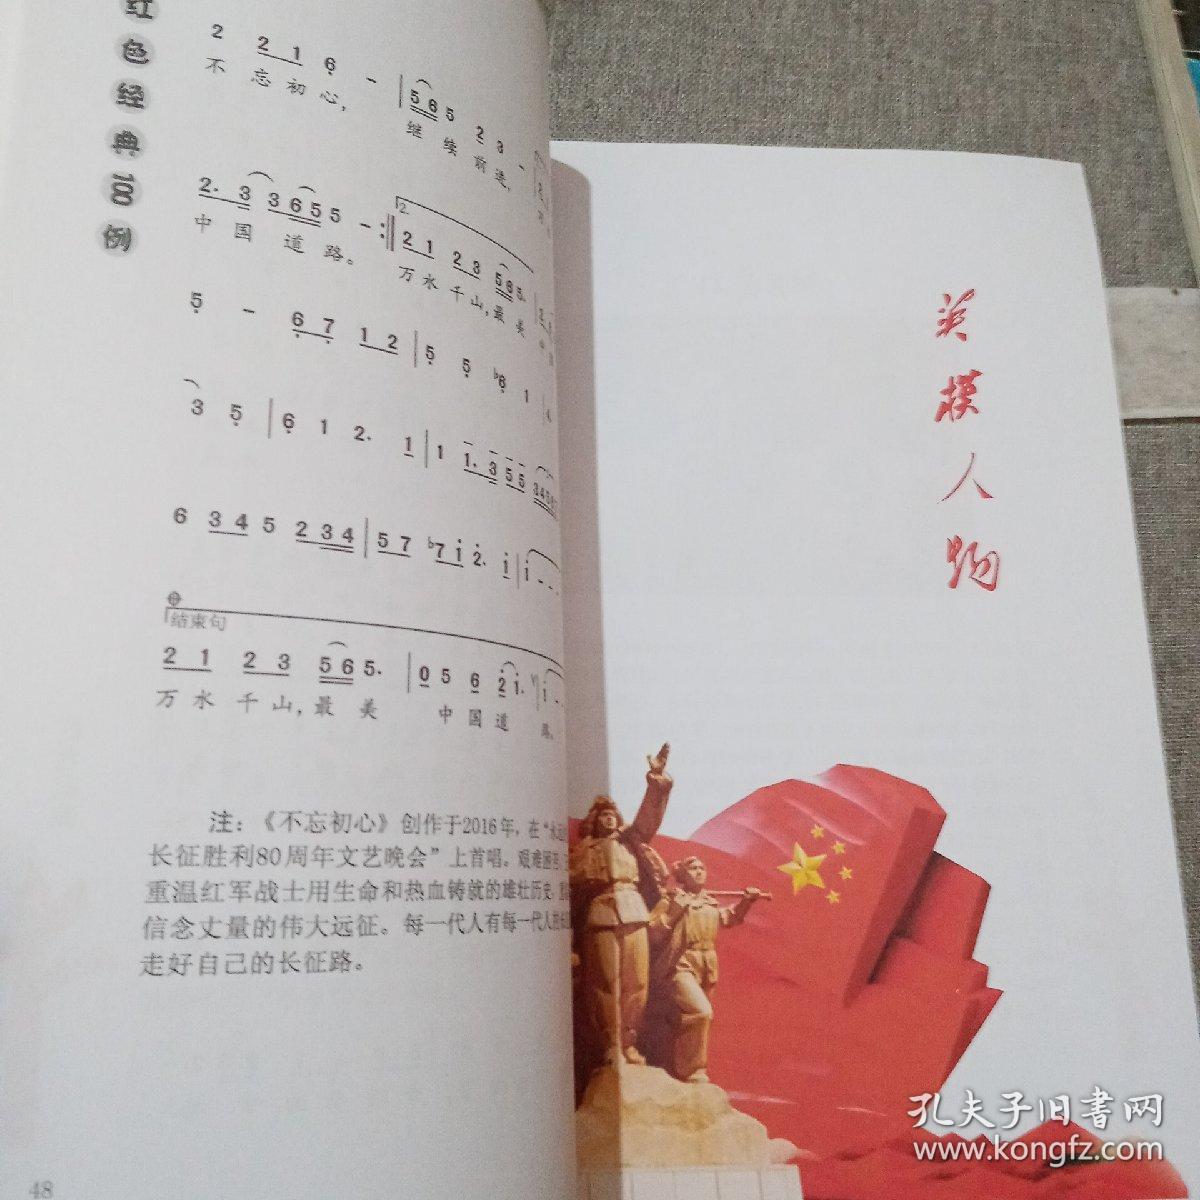 红色经典100例
2 2 1 6 - | 5 6 5 2 3 -
不忘初心, 继续前进,
2. 3 3 6 5 5 - :‖ 2. 2 1 2 3 5 6 5.
中国道路。 万水千山,最美
5 - 6 7 1 2 | 5 5 ♭6 1 |
3 5 | 6 1 2. 1 | 1 1. 3 5 5
6 3 4 5 2 3 4 | 5 7 ♭7 1 2. 1 | 1 - -
结束句
2 1 2 3 5 6 5. | 0 5 6 2 1. | 1 -
万水千山,最美 中国道路。
注：《不忘初心》创作于2016年，在“永
长征胜利80周年文艺晚会”上首唱。艰难
重温红军战士用生命和热血铸就的雄壮历史，
信念丈量的伟大远征。每一代人有每一代人的长
走好自己的长征路。
48
英模人物
孔夫子旧书网
www.kongfz.com